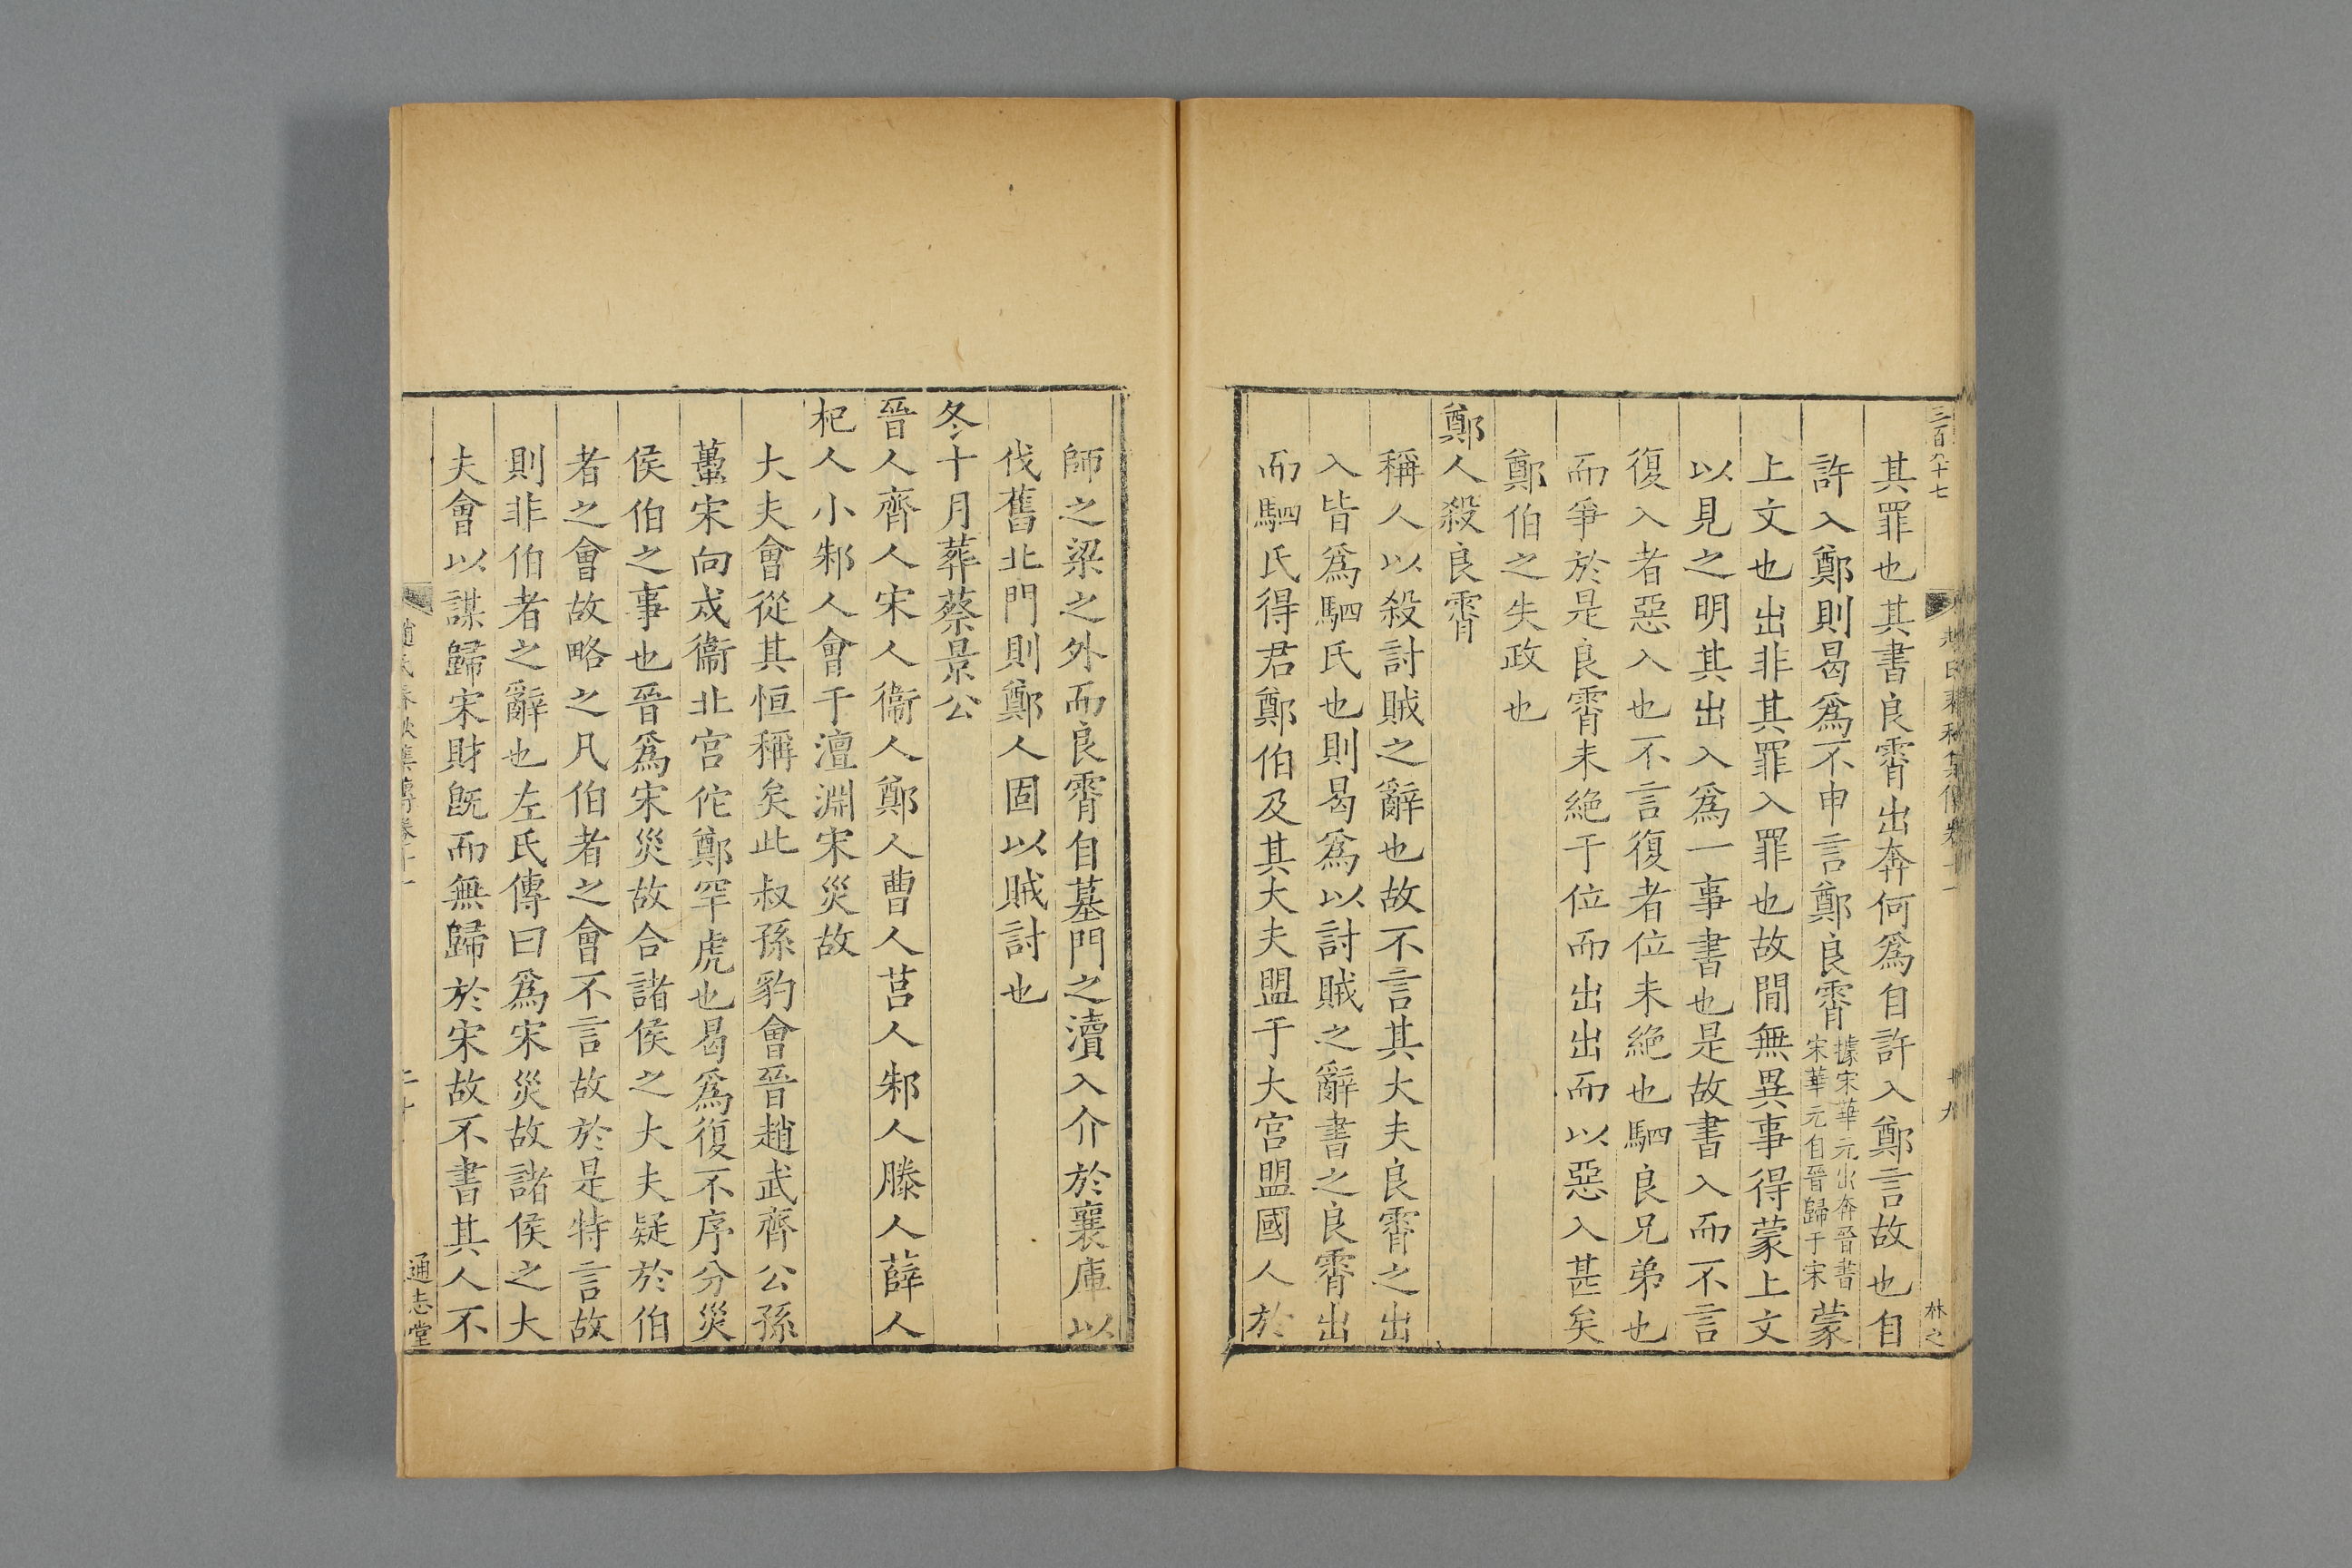 三百八十七
林之
其罪也其書良霄出奔何爲自許入鄭言故也自
許入鄭則曷爲不申言鄭良霄據宋華元出奔晉書宋華元自晉歸于宋蒙
上文也出非其罪入罪也故間無異事得蒙上文
以見之明其出入爲一事書也是故書入而不言
復入者惡入也不言復者位未絶也駟良兄弟也
而爭於是良霄未絶于位而出出而以惡入甚矣
鄭伯之失政也
鄭人殺良霄
稱人以殺討賊之辭也故不言其大夫良霄之出
入皆爲駟氏也則曷爲以討賊之辭書之良霄出
而駟氏得君鄭伯及其大夫盟于大宫盟國人於
師之梁之外而良霄自墓門之瀆入介於襄庫以
伐舊北門則鄭人固以賊討也
冬十月葬蔡景公
晉人齊人宋人衞人鄭人曹人莒人邾人滕人薛人
杞人小邾人會于澶淵宋災故
大夫會從其恒稱矣此叔孫豹會晉趙武齊公孫
蠆宋向戌衞北宫佗鄭罕虎也曷爲復不序分災
侯伯之事也晉爲宋災故合諸侯之大夫疑於伯
者之會故略之凡伯者之會不言故於是特言故
則非伯者之辭也左氏傳曰爲宋災故諸侯之大
夫會以謀歸宋財旣而無歸於宋故不書其人不
通志堂